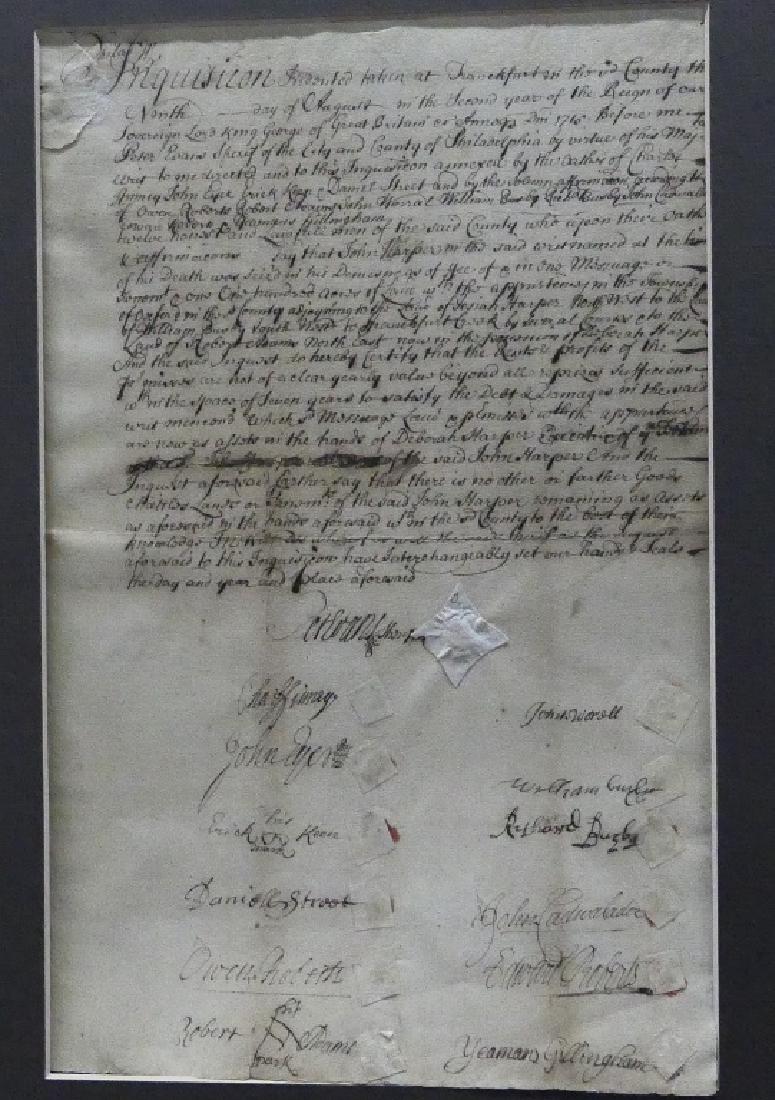 Philad
Inquisition Indented taken at Franckfort in the sd County the
Ninth day of August in the Second year of the Reign of our
Sovereign Lord King George of Great Britain &c Annoqe Dni 1715 Before me
Peter Evans Sherif of the City and County of Philadelphia by virtue of his Maj
writ to me directed and to this Inquisition annexed by the Oathes of Charles
John Eyer Erick Keen Daniel Street and by the Solemn affirmacon
of Owen Roberts Robert Adams John Worral William Busby Richd Busby John Cadwalad
Edward Roberts & Yeamans Gillingham
twelve honest and Lawfull men of the said County who upon there oaths
& affirmacons say that John Harper in the said writ named at the time
of his Death was seized in his Demesne as of ffee of & in one Messuage or
Tenemt & one hundred Acres of Land with the appurtenes in the Township
of Oxford in the sd County adjoyning to the Land of Josiah Harper North West to the
of William Busby South West to Franckfort Creek by several Courses & to the
Land of Robert Adams North East now in the possession of Deborah Harper
And the said Inquest do hereby Certify that the Rents & profits of the
are not of a clear yearly value beyond all reprizes sufficient
in the Space of Seven years to satisfy the Debt & Damages in the said
writ menconed Which sd Messuage Land & pmisses with the appurtenes
are now as assets in the hands of Deborah Harper Executrix of
of the said John Harper And the
Inquest aforesaid farther say that there is no other or farther Goods
Chattles Lands or Tenemts of the said John Harper remaining as Assets
as aforesaid in the hands aforesaid in the sd County to the best of their
knowledge In
aforesaid to this Inquisicon have Interchangeably set our hands & Seals
the day and year and place aforesaid
Pet Evans Sherif
Cha
John Eyer
John Worell
William Busby
Erick his mark Keen
Richard Busby
Daniell Street
John Cadwalader
Owen Roberts
Edward Roberts
Robert his mark Adams
Yeamans Gillingham